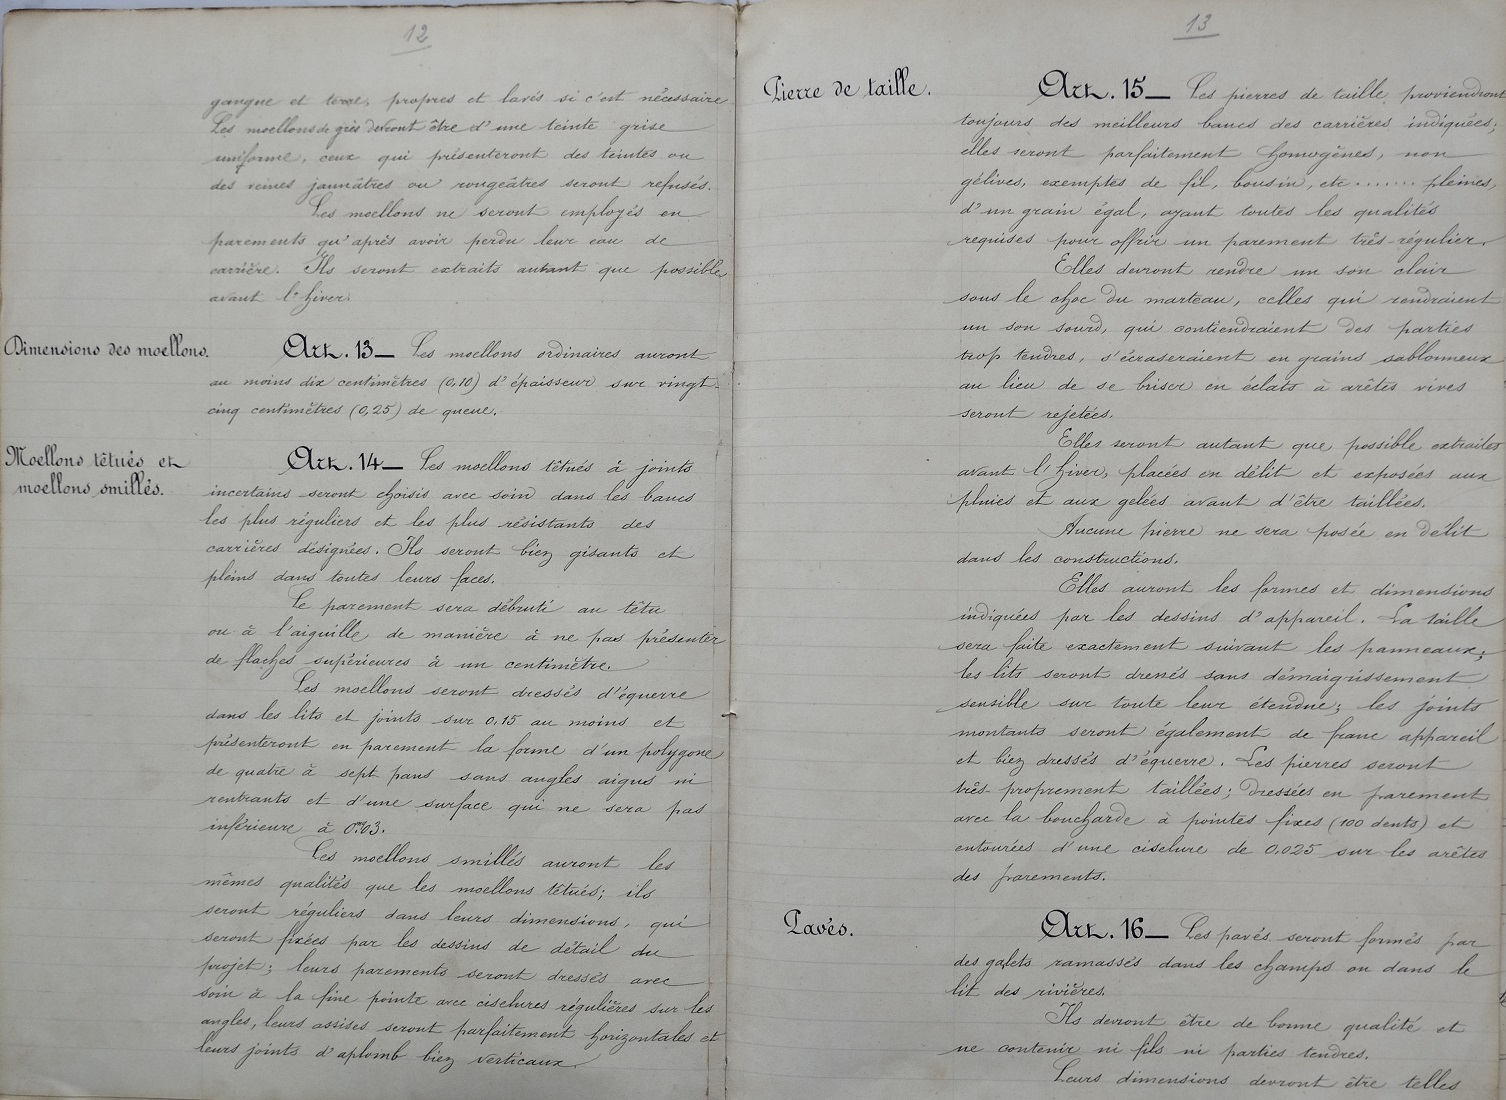 12
gangue et terre, propres et lavés si c'est nécessaire
Les moellons de grès devront être d'une teinte grise
uniforme, ceux qui présenteront des teintes ou
des veines jaunâtres ou rougeâtres seront refusés.
Les moellons ne seront employés en
parements qu'après avoir perdu leur eau de
carrière. Ils seront extraits autant que possible
avant l'hiver.
Dimensions des moellons.
Art. 13 — Les moellons ordinaires auront
au moins dix centimètres (0,10) d'épaisseur sur vingt-
cinq centimètres (0,25) de queue.
Moellons têtués et
moellons smillés.
Art. 14 — Les moellons têtués à joints
incertains seront choisis avec soin dans les bancs
les plus réguliers et les plus résistants des
carrières désignées. Ils seront bien gisants et
pleins dans toutes leurs faces.
Le parement sera débruté au têtu
ou à l'aiguille de manière à ne pas présenter
de flaches supérieures à un centimètre.
Les moellons seront dressés d'équerre
dans les lits et joints sur 0,15 au moins et
présenteront en parement la forme d'un polygone
de quatre à sept pans sans angles aigus ni
rentrants et d'une surface qui ne sera pas
inférieure à 0m03.
Les moellons smillés auront les
mêmes qualités que les moellons têtués; ils
seront réguliers dans leurs dimensions, qui
seront fixées par les dessins de détail du
projet; leurs parements seront dressés avec
soin à la fine pointe avec ciselures régulières sur les
angles, leurs assises seront parfaitement horizontales et
leurs joints d'aplomb bien verticaux.
13
Pierre de taille.
Art. 15 — Les pierres de taille proviendront
toujours des meilleurs bancs des carrières indiquées;
elles seront parfaitement homogènes, non
gélives, exemptes de fil, bousin, etc ....... pleines,
d'un grain égal, ayant toutes les qualités
requises pour offrir un parement très régulier.
Elles devront rendre un son clair
sous le choc du marteau, celles qui rendraient
un son sourd, qui contiendraient des parties
trop tendres, s'écraseraient en grains sablonneux
au lieu de se briser en éclats à arêtes vives
seront rejetées.
Elles seront autant que possible extraites
avant l'hiver, placées en délit et exposées aux
pluies et aux gelées avant d'être taillées.
Aucune pierre ne sera posée en délit
dans les constructions.
Elles auront les formes et dimensions
indiquées par les dessins d'appareil. La taille
sera faite exactement suivant les panneaux;
les lits seront dressés sans démaigrissement
sensible sur toute leur étendue; les joints
montants seront également de franc appareil
et bien dressés d'équerre. Les pierres seront
très proprement taillées; dressées en parement
avec la boucharde à pointes fixes (100 dents) et
entourées d'une ciselure de 0,025 sur les arêtes
des parements.
Pavés.
Art. 16 — Les pavés seront formés par
des galets ramassés dans les champs ou dans le
lit des rivières.
Ils devront être de bonne qualité et
ne contenir ni fils ni parties tendres.
Leurs dimensions devront être telles